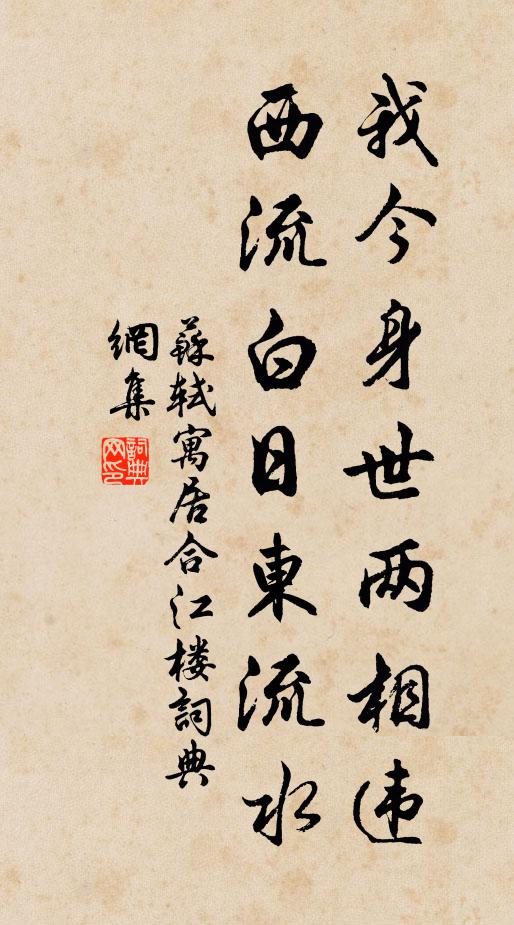 我今身世两相违
西流白日東流水
蘇軾寓居合江楼詞典
網集
詞典网印